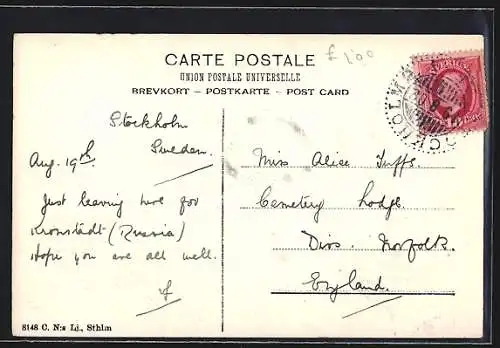 £1.00
CARTE POSTALE
UNION POSTALE UNIVERSELLE
BREVKORT – POSTKARTE – POST CARD
SVERIGE
STOCKHOLM
Stockholm
Sweden.
Aug. 19th
Just leaving here for
Kronstadt (Russia)
Hope you are all well.
Miss Alice Tuffs.
Cemetery Lodge.
Diss. Norfolk.
England.
8148 C. N:s Lj., Sthlm